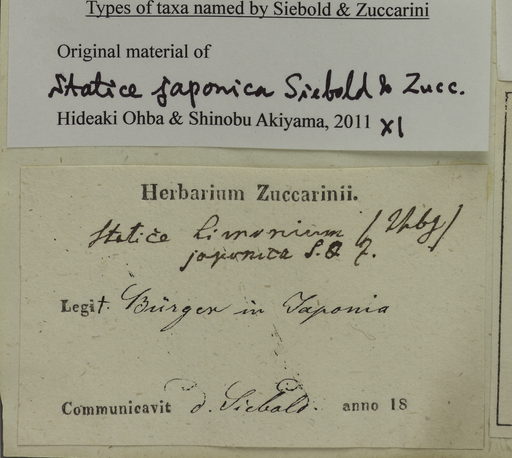 Types of taxa named by Siebold & Zuccarini
Original material of
Statice japonica Siebold & Zucc.
Hideaki Ohba & Shinobu Akiyama, 2011 XI
Herbarium Zuccarinii.
Statice Limonium (Thbg)
japonica S. & Z.
Legit. Bürger in Japonia
Communicavit d. Siebold. anno 18